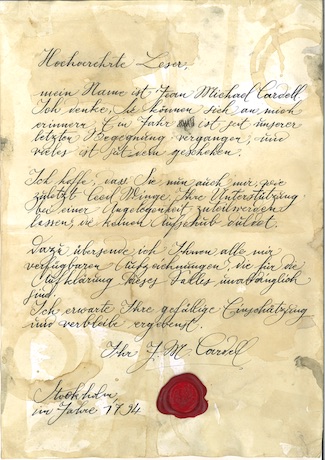 Hochverehrte Leser,
mein Name ist Jean Michael Cardell.
Ich denke, Sie können sich an mich
erinnern. Ein Jahr ist seit unserer
letzten Begegnung vergangen, und
vieles ist seitdem geschehen.
Ich hoffe, dass Sie nun auch mir, wie
zuletzt Cecil Winge, Ihre Unterstützung
bei einer Angelegenheit zuteilwerden
lassen, die keinen Aufschub duldet.
Dazu übersende ich Ihnen alle mir
verfügbaren Aufzeichnungen, die für die
Aufklärung dieses Falles unabdinglich
sind.
Ich erwarte Ihre gefällige Einschätzung
und verbleibe ergebenst.
Ihr J. M. Cardell
Stockholm,
im Jahre 1794